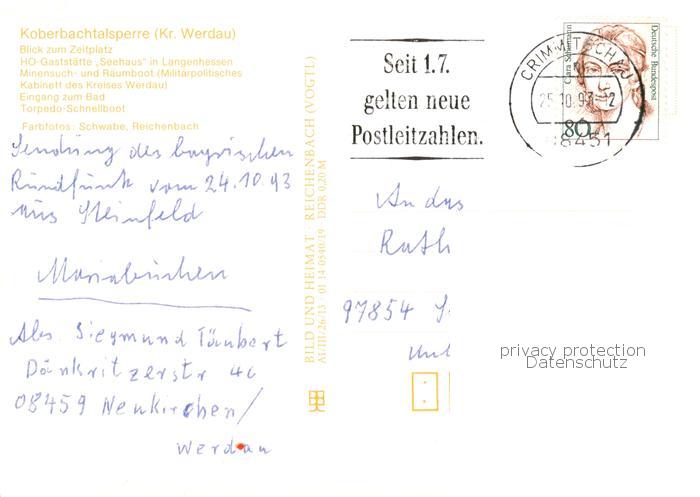 Koberbachtalsperre (Kr. Werdau)
Blick zum Zeltplatz
HO-Gaststätte „Seehaus" in Langenhessen
Minensuch- und Räumboot (Militärpolitisches
Kabinett des Kreises Werdau)
Eingang zum Bad
Torpedo-Schnellboot
Farbfotos: Schwabe, Reichenbach
Sendung des bayrischen
Rundfunk vom 24.10.93
aus Steinfeld
Mariabuchen
Abs. Siegmund Täubert
Dänkritzerstr 4c
08459 Neukirchen/
Werdau
BILD UND HEIMAT · REICHENBACH (VOGTL)
A1/III/26/13 01 14 0540/19 DDR 0,20 M
Seit 1.7.
gelten neue
Postleitzahlen.
CRIMMITSCHAU
25.10.93-12
08451
Clara Schumann
Deutsche Bundespost
80
An das
Rath
97854 S
privacy protection
Datenschutz